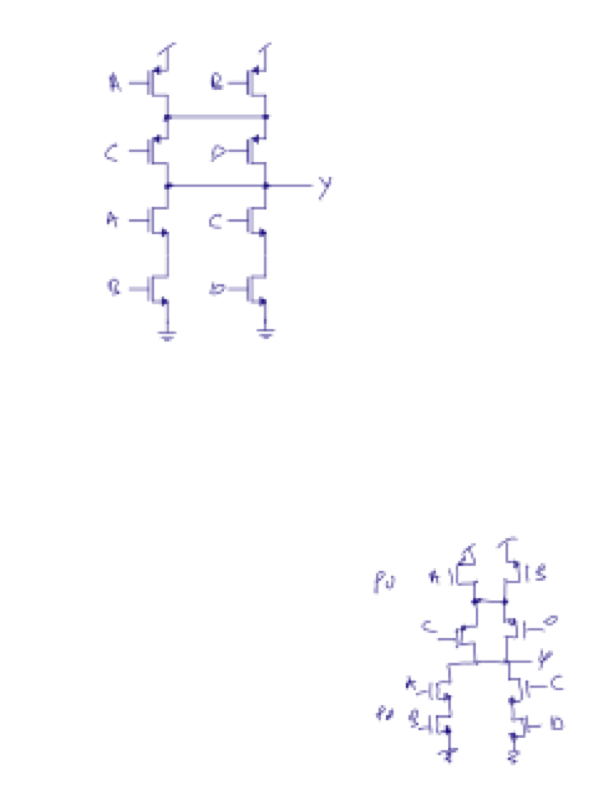 A B
C D
Y
A C
B D
PU A B
C D
Y
A C
PD B D